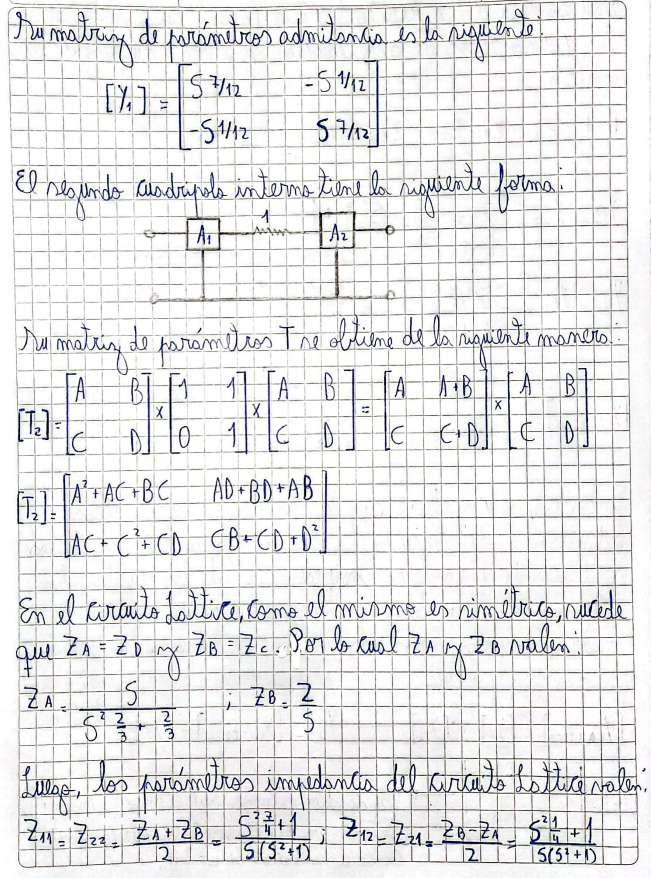 Su matriz de parámetros admitancia es la siguiente:
[Y₁] = [S 7/12  -S 1/12
-S 1/12  S 7/12]
El segundo cuadripolo interno tiene la siguiente forma:
1
A₁  A₂
Su matriz de parámetros T se obtiene de la siguiente manera:
[T₂] = [A B; C D] x [1 1; 0 1] x [A B; C D] = [A A+B; C C+D] x [A B; C D]
[T₂] = [A²+AC+BC  AD+BD+AB
AC+C²+CD  CB+CD+D²]
En el circuito Lattice, como el mismo es simétrico, sucede
que ZA = ZD y ZB = ZC. Por lo cual ZA y ZB valen:
ZA = S / (S² 2/3 + 2/3) ; ZB = 2/S
Luego, los parámetros impedancia del circuito Lattice valen:
Z₁₁ = Z₂₂ = (ZA + ZB)/2 = (S² 7/4 + 1)/(S(S²+1)) ; Z₁₂ = Z₂₁ = (ZB - ZA)/2 = (S² 1/4 + 1)/(S(S²+1))